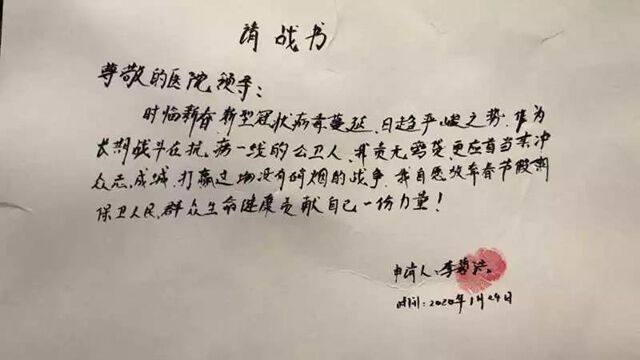 请战书
尊敬的医院领导：
时临新春，新型冠状病毒蔓延，日趋严峻之势，作为
长期战斗在抗病一线的公卫人，我责无旁贷，更应首当其冲
众志成城，打赢这场没有硝烟的战争，我自愿放弃春节假期
保卫人民群众生命健康贡献自己一份力量！
申请人：李
时间：2020年1月24日